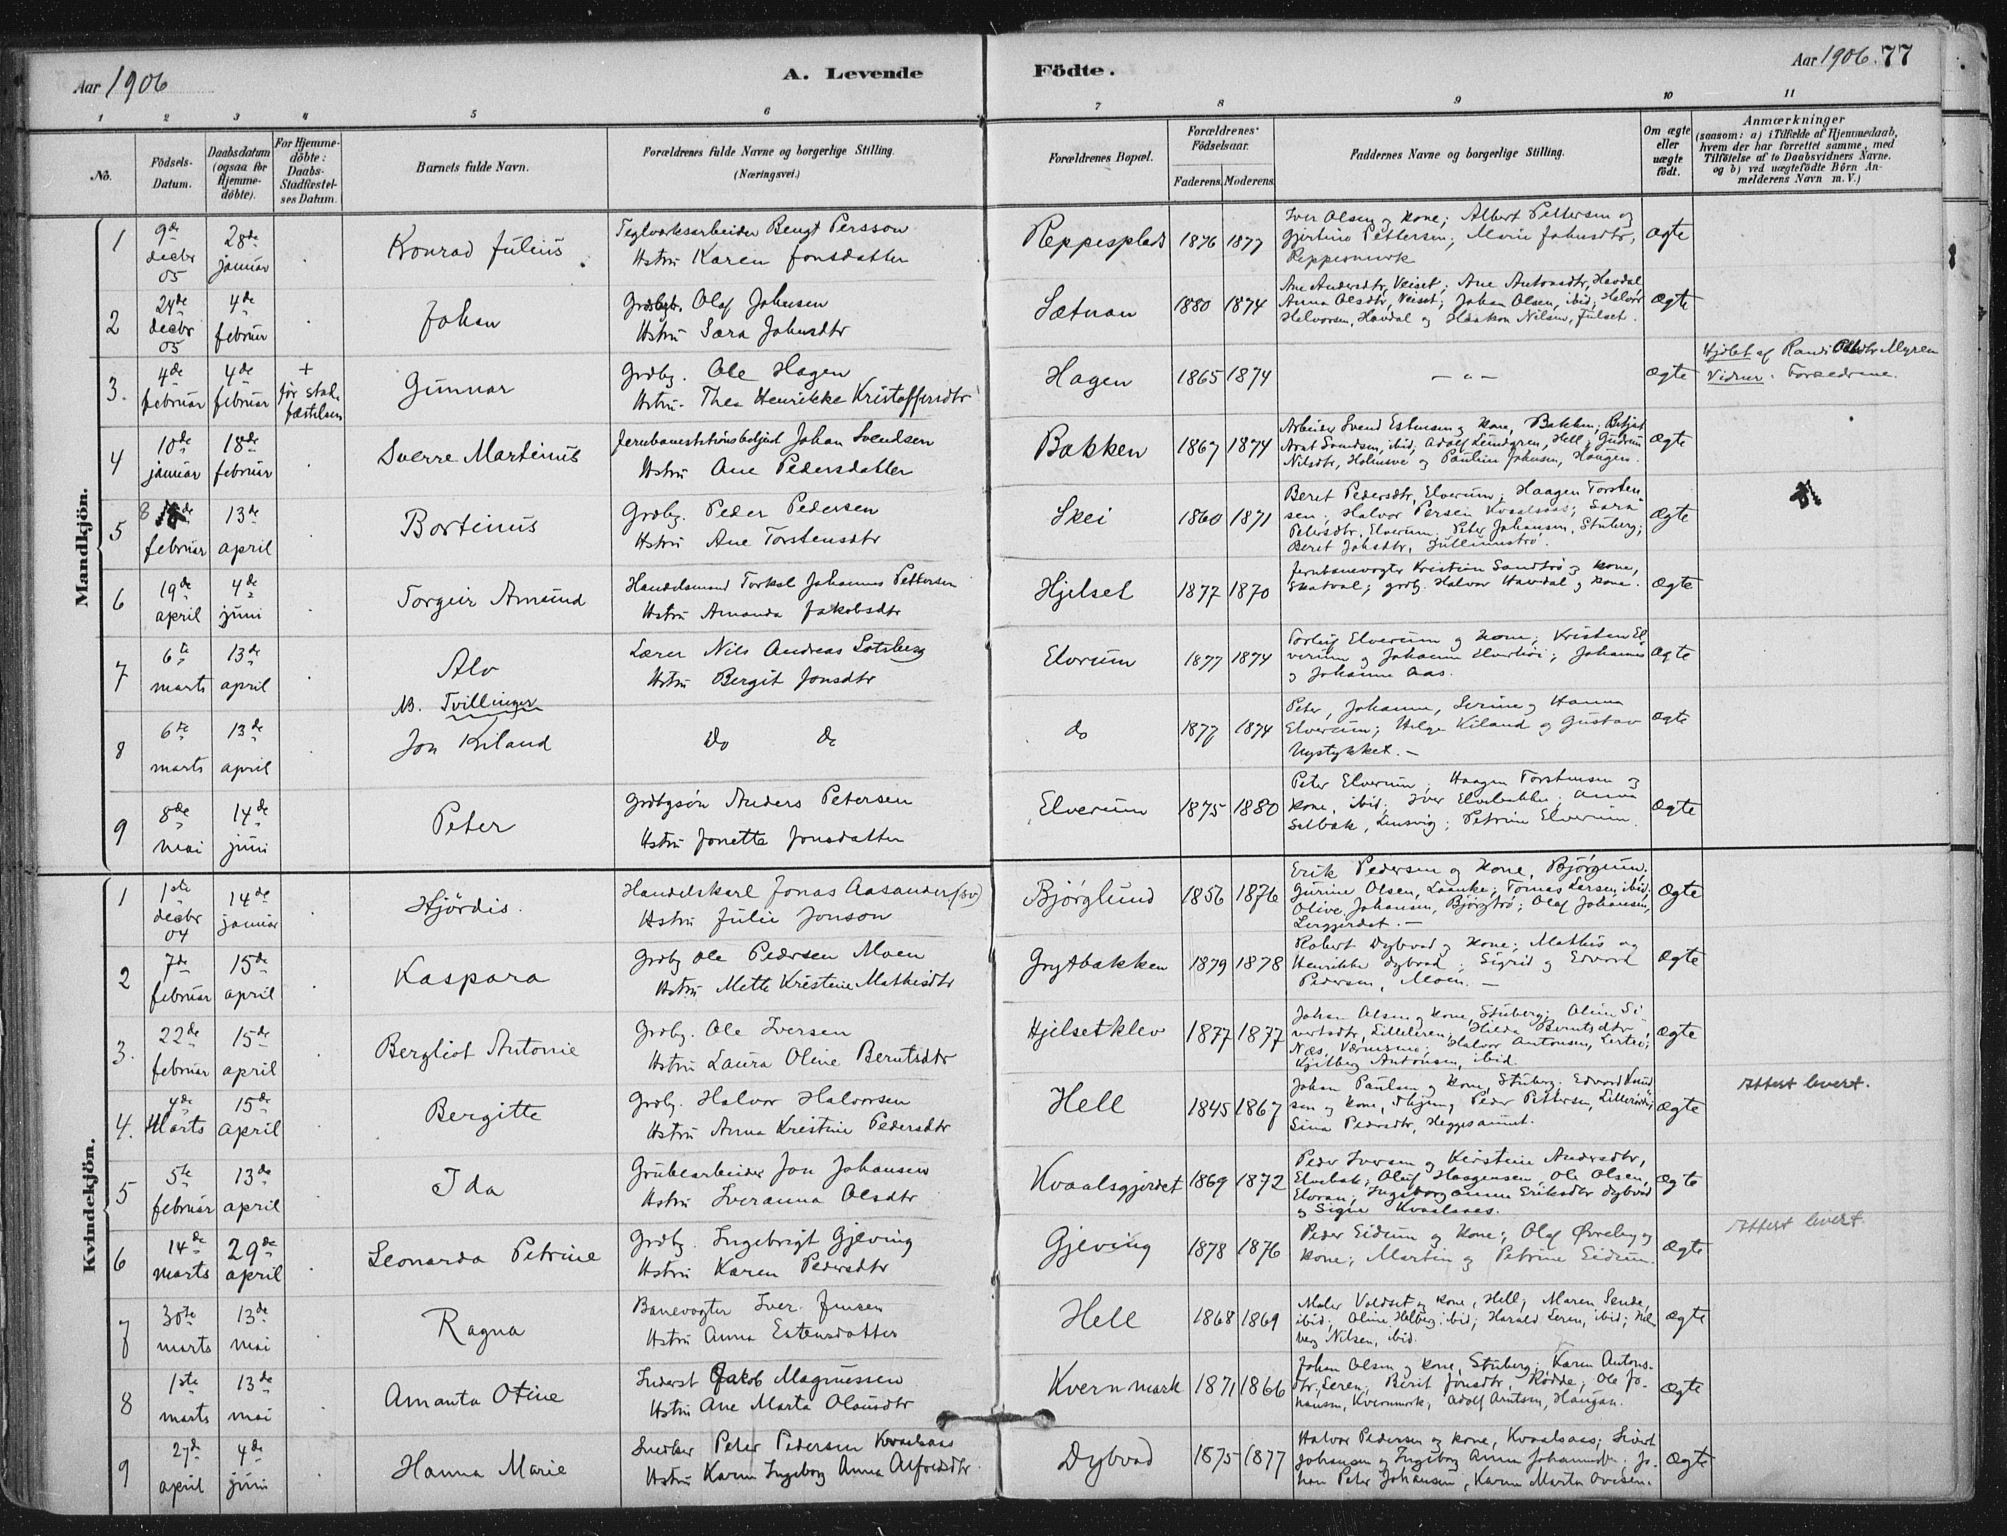 Aar 1906
A. Levende
Födte.
Aar 1906. 77
1 2 3 4 5 6 7 8 9 10 11
No.
Födsels-Datum.
Daabsdatum (ogsaa for Hjemmedöbte).
For Hjemmedöbte: Daabs-Stadfæstelses Datum.
Barnets fulde Navn.
Forældrenes fulde Navne og borgerlige Stilling. (Næringsvei.)
Forældrenes Bopæl.
Forældrenes Födselsaar.
Faderens. Moderens.
Faddernes Navne og borgerlige Stilling.
Om ægte eller uægte födt.
Anmærkninger
(saasom: a) i Tilfælde af Hjemmedaab, hvem der har forrettet samme, med Tilföielse af to Daabsvidners Navne. og b) ved uægtefödte Börn Anmelderens Navn m. V.)
Mandkjön.
1 9de decbr 05 28de januar Konrad Julius Teglverksarbeider Bengt Persson
Hstru Karen Jonsdatter Reppesplads 1876 1877 Iver Olsen og kone; Albert Pettersen og
Gjertine Pettersen; Marie Johnsdtr, Reppesmark Ægte
2 24de decbr 05 4de februar Johan Grdbgb. Olaf Johnsen
Hstru Sara Johnsdtr Sætnan 1880 1874 Ane Andersdtr, Veiset; Ane Antonsdtr, Havdal
Anna Olsdtr, Veiset; Johan Olsen, ibid; Halvor
Halvorsen, Havdal og Haakon Nilsen, Julset. Ægte
3. 4de februar 4de februar + før stadfæstelsen Gunnar Grdbg. Ole Hagen
Hstru. Thea Henrikke Kristoffersdtr Hagen 1865 1874 — " — Ægte Hjdbt af Randi Olsdtr Myren
Vidner. Forældrene.
4 10de januar 18de februar Sverre Martinus Jernbanestationsbetjent Johan Svendsen
Hstru Ane Pedersdatter Bakken 1867 1874 Arbeider Svend Estensen og kone, Bakken; Betjent
Arnt Svendsen, ibid; Adolf Lundgren, Hell; Gudrun
Nilsdtr, Holmsve og Pauline Johnsen, Haugen. Ægte
5 8de februar 13de april Bortinus Grdbg. Peder Pedersen
Hstru Ane Torstensdtr Skei 1860 1871 Beret Pedersdtr, Elverum; Haagen Torstensen;
Halvor Persen Kvaalsaas; Sara
Petersdtr, Elverum; Peter Johansen, Stuberg;
Beret Johsdtr, Ægte
6 19de april 4de juni Torgeir Amund Handelsmand Torkel Johannes Pettersen
Hstru Amanda Jakobsdtr Hjelset 1877 1870 Jernbanevogter Kristian Sandtrø og kone,
Skatval; grdbg. Halvor Havdal og kone. Ægte
7 6te marts 13de april Alv Lærer Nils Andreas Lotsberg
Hstru Bergit Jonsdtr Elverum 1877 1874 Torleif Elverum og kone; Kristen Elverum
og Johanne Elverhøi; Johannes
og Johanna Aas. Ægte
NB. Tvillinger
8 6te marts 13de april Jon Kiland Do Do do 1877 1874 Peter, Johanne, Serine og Hanna
Elverum; Helge Kiland og Gustav
Nystykket. — Ægte
9 8de mai 14de juni Peter Grdbgsøn Anders Petersen
Hstru Jonetta Jonsdatter Elverum 1875 1880 Peter Elverum, Haagen Torstensen og
kone, ibid; Iver Elvebakke; Anna
Selbak, Lensvig; Petrine Elverum. Ægte
Kvindekjön.
1 1ste decbr 04 14de januar Hjördis. Handelskarl Jonas Aasander (sv)
Hstru Julie Jonson Bjørglund 1856 1876 Erik Pedersen og kone, Bjørglund;
Gurine Olsen, Laanke; Tomas Larsen, ibid;
Olive Johansen, Bjørgtrø; Olaf Johansen,
Lergjerdet. — Ægte
2 7de februar 15de april Kaspara Grdbg Ole Pedersen Moen
Hstru Mette Kristine Mathisdtr Grytbakken 1879 1878 Robert Dybvad og kone; Mathis og
Henrikke Dybvad; Sigrid og Edvard
Pedersen, Moen. — Ægte
3. 22de februar 15de april Bergliot Antonie Grdbg. Ole Iversen
Hstru Laura Oline Berntsdtr Hjelsetklev 1877 1877 Johan Olsen og kone, Stuberg; Oline Sivertsdtr,
Lilleleren; Hilda Berntsdtr,
Næs, Værnesmo; Halvor Antonsen, Lertrø;
Antonsen, ibid. Ægte
4. 4de Marts 15de april Bergitte Grdbg. Halvor Halvorsen
Hstru Anna Kristine Pedersdtr Hell 1845 1867 Johan Paulsen og kone, Stuberg; Edvard Knudsen
og kone, Peder Pettersen,
Sina Pedersdtr, Ægte Attest levert.
5 5te februar 13de april Ida Grubearbeider Jon Johansen
Hstru Iveranna Olsdtr Kvaalsgjerdet 1869 1872 Peder Iversen og Kirstine Andersdtr,
Elvebak; Oluf Haagensen, Ole Olsen,
Elvran; Ingeborganna Eriksdtr Dybvad
og Signe Kvaalsaas. Ægte
6 14de marts 29de april Leonarda Petrine Grdbg. Ingebrigt Gjeving
Hstru Karen Pedersdtr Gjeving 1878 1876 Peder Eidum og kone; Olaf Øvreby og
kone; Martin og Petrine Eidum. Ægte Attest levert.
7 30te marts 13de mai Ragna Banevogter Iver Jensen
Hstru Anna Estensdatter Hell 1868 1869 Maler Valdset og kone, Hell; Maren Sende,
ibid; Oline Helberg ibid; Harald Leren, ibid;
Nilsen, ibid. Ægte
8 1ste marts 13de mai Amanta Otine Inderst Jakob Magnussen
Hstru Ane Marta Olausdtr Kvernmark 1871 1866 Johan Olsen og kone, Stuberg; Karen Antonsdtr,
Leren; Berit Jonsdtr, Rødde; Ole Johansen,
Kvernmark; Adolf Arntsen, Haugan. Ægte
9 27de april 4de juni Hanna Marie Snedker Peter Pedersen Kvaalsaas
Hstru Karen Ingeborg Anna Alfredsdtr Dybvad 1875 1877 Halvor Pedersen og kone, Kvaalsaas; Sivert
Johansen og Ingeborg Anna Johannesdtr; Johan
Peter Johansen, Karen Marta Ovesen. Ægte